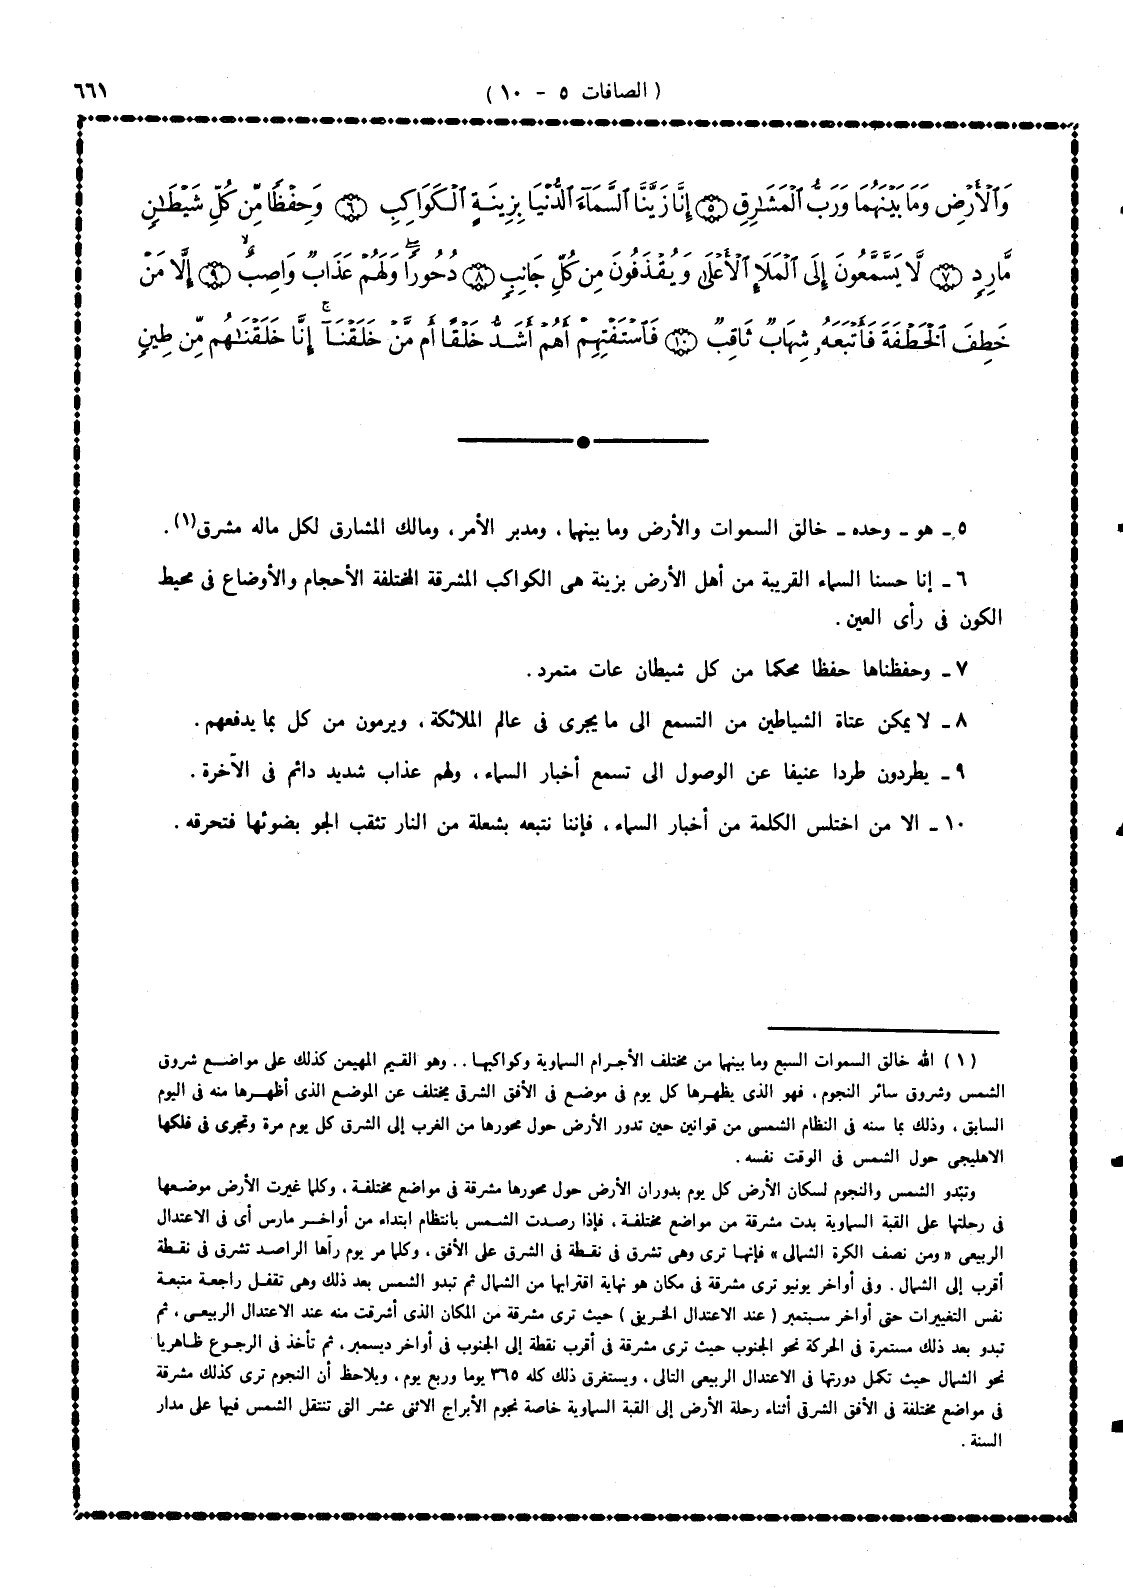 ( الصافات ٥ - ١٠ )
٦٦١
وَٱلْأَرْضِ وَمَا بَيْنَهُمَا وَرَبُّ ٱلْمَشَٰرِقِ ٥ إِنَّا زَيَّنَّا ٱلسَّمَآءَ ٱلدُّنْيَا بِزِينَةٍ ٱلْكَوَاكِبِ ٦ وَحِفْظًا مِّن كُلِّ شَيْطَٰنٍ
مَّارِدٍ ٧ لَّا يَسَّمَّعُونَ إِلَى ٱلْمَلَإِ ٱلْأَعْلَىٰ وَيُقْذَفُونَ مِن كُلِّ جَانِبٍ ٨ دُحُورًا ۖ وَلَهُمْ عَذَابٌ وَاصِبٌ ۙ ٩ إِلَّا مَنْ
خَطِفَ ٱلْخَطْفَةَ فَأَتْبَعَهُۥ شِهَابٌ ثَاقِبٌ ١٠ فَٱسْتَفْتِهِمْ أَهُمْ أَشَدُّ خَلْقًا أَم مَّنْ خَلَقْنَآ ۚ إِنَّا خَلَقْنَٰهُم مِّن طِينٍ
٥ـ هو ـ وحده ـ خالق السموات والأرض وما بينهما ، ومدبر الأمر ، ومالك المشارق لكل ماله مشرق(١) .
٦ ـ إنا حسنا السماء القريبة من أهل الأرض بزينة هى الكواكب المشرقة المختلفة الأحجام والأوضاع فى محيط
الكون فى رأى العين .
٧ ـ وحفظناها حفظا محكما من كل شيطان عات متمرد .
٨ ـ لا يمكن عتاة الشياطين من التسمع الى ما يجرى فى عالم الملائكة ، ويرمون من كل بما يدفعهم .
٩ ـ يطردون طردا عنيفا عن الوصول الى تسمع أخبار السماء ، ولهم عذاب شديد دائم فى الآخرة .
١٠ ـ الا من اختلس الكلمة من أخبار السماء ، فإننا نتبعه بشعلة من النار تثقب الجو بضوئها فتحرقه .
( ١ ) الله خالق السموات السبع وما بينها من مختلف الأجرام السماوية وكواكبها . . وهو القيم المهيمن كذلك على مواضع شروق
الشمس وشروق سائر النجوم ، فهو الذى يظهرها كل يوم فى موضع فى الأفق الشرقى يختلف عن الموضع الذى أظهرها منه فى اليوم
السابق ، وذلك بما سنه فى النظام الشمسى من قوانين حين تدور الأرض حول محورها من الغرب إلى الشرق كل يوم مرة وتجرى فى فلكها
الاهليجى حول الشمس فى الوقت نفسه .
وتبدو الشمس والنجوم لسكان الأرض كل يوم بدوران الأرض حول محورها مشرقة فى مواضع مختلفة ، وكلما غيرت الأرض موضعها
فى رحلتها على القبة السماوية بدت مشرقة من مواضع مختلفة ، فإذا رصدت الشمس بانتظام ابتداء من أواخر مارس أى فى الاعتدال
الربيعى « ومن نصف الكرة الشمالى » فإنها ترى وهى تشرق فى نقطة فى الشرق على الأفق ، وكلما مر يوم رآها الراصد تشرق فى نقطة
أقرب إلى الشمال . وفى أواخر يونيو ترى مشرقة فى مكان هو نهاية اقترابها من الشمال ثم تبدو الشمس بعد ذلك وهى تقفل راجعة متبعة
نفس التغييرات حتى أواخر سبتمبر ( عند الاعتدال الخريفى ) حيث ترى مشرقة من المكان الذى أشرقت منه عند الاعتدال الربيعى ، ثم
تبدو بعد ذلك مستمرة فى الحركة نحو الجنوب حيث ترى مشرقة فى أقرب نقطة إلى الجنوب فى أواخر ديسمبر ، ثم تأخذ فى الرجوع ظاهريا
نحو الشمال حيث تكمل دورتها فى الاعتدال الربيعى التالى ، ويستغرق ذلك كله ٣٦٥ يوما وربع يوم ، ويلاحظ أن النجوم ترى كذلك مشرقة
فى مواضع مختلفة فى الأفق الشرقى أثناء رحلة الأرض إلى القبة السماوية خاصة نجوم الأبراج الاثنى عشر التى تنتقل الشمس فيها على مدار
السنة .